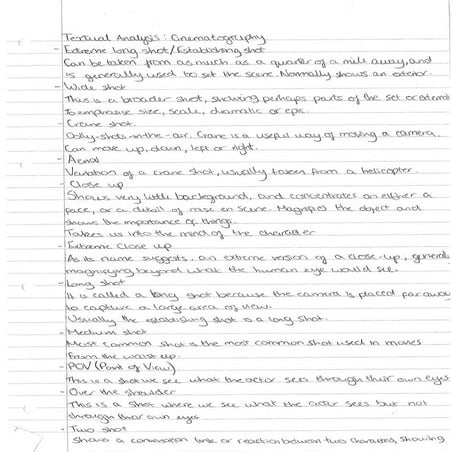 Textual Analysis: Cinematography
- Extreme long shot/Establishing shot
Can be taken from as much as a quarter of a mile away, and
is generally used to set the scene. Normally shows an exterior.
- Wide shot
This is a broader shot, showing perhaps parts of the set or external
To emphasise size, scale, dramatic or epic.
- Crane shot.
Dolly-shots-in-the-air. Crane is a useful way of moving a camera.
Can move up, down, left or right.
- Aerial
Variation of a crane shot, usually taken from a helicopter.
- Close up
Shows very little background, and concentrates on either a
face, or a detail of mise en scene. Magnifies the object and
shows the importance of things.
Takes us into the mind of the character
- Extreme Close up
As its name suggests, an extreme version of a close-up, generally
magnifying beyond what the human eye would see.
- Long shot
It is called a long shot because the camera is placed far away
to capture a large area of view.
Usually the establishing shot is a long shot.
- Medium shot
Most common shot is the most common shot used in movies
From the waist up.
- POV (Point of View)
This is a shot we see what the actor sees through their own eyes
- Over the shoulder
This is a shot where we see what the actor sees but not
through their own eyes
- Two shot
Shows a conversation or reaction between two characters, showing